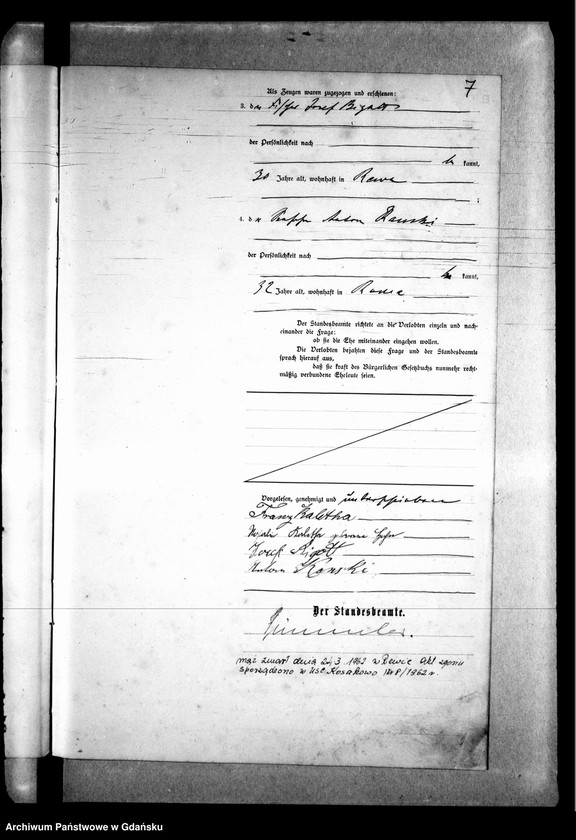 7
Als Zeugen waren zugezogen und erschienen:
3. der Fischer Josef Bigott
der Persönlichkeit nach
be kannt,
30 Jahre alt, wohnhaft in Rewa
;
4. der Anton Konski
der Persönlichkeit nach
be kannt,
32 Jahre alt, wohnhaft in Rewa
Der Standesbeamte richtete an die Verlobten einzeln und nach-
einander die Frage:
ob sie die Ehe miteinander eingehen wollen.
Die Verlobten bejahten diese Frage und der Standesbeamte
sprach hierauf aus,
daß sie kraft des Bürgerlichen Gesetzbuchs nunmehr recht-
mäßig verbundene Eheleute seien.
Vorgelesen, genehmigt und unterschrieben
Franz Kaletha
geborene
Josef Bigott
Anton Konski
Der Standesbeamte.
mąż zmarł dnia 3 1962 w Rewie Akt zgonu
sporządzono w USC Kosakowo Nr 8/1962 r.
Archiwum Państwowe w Gdańsku